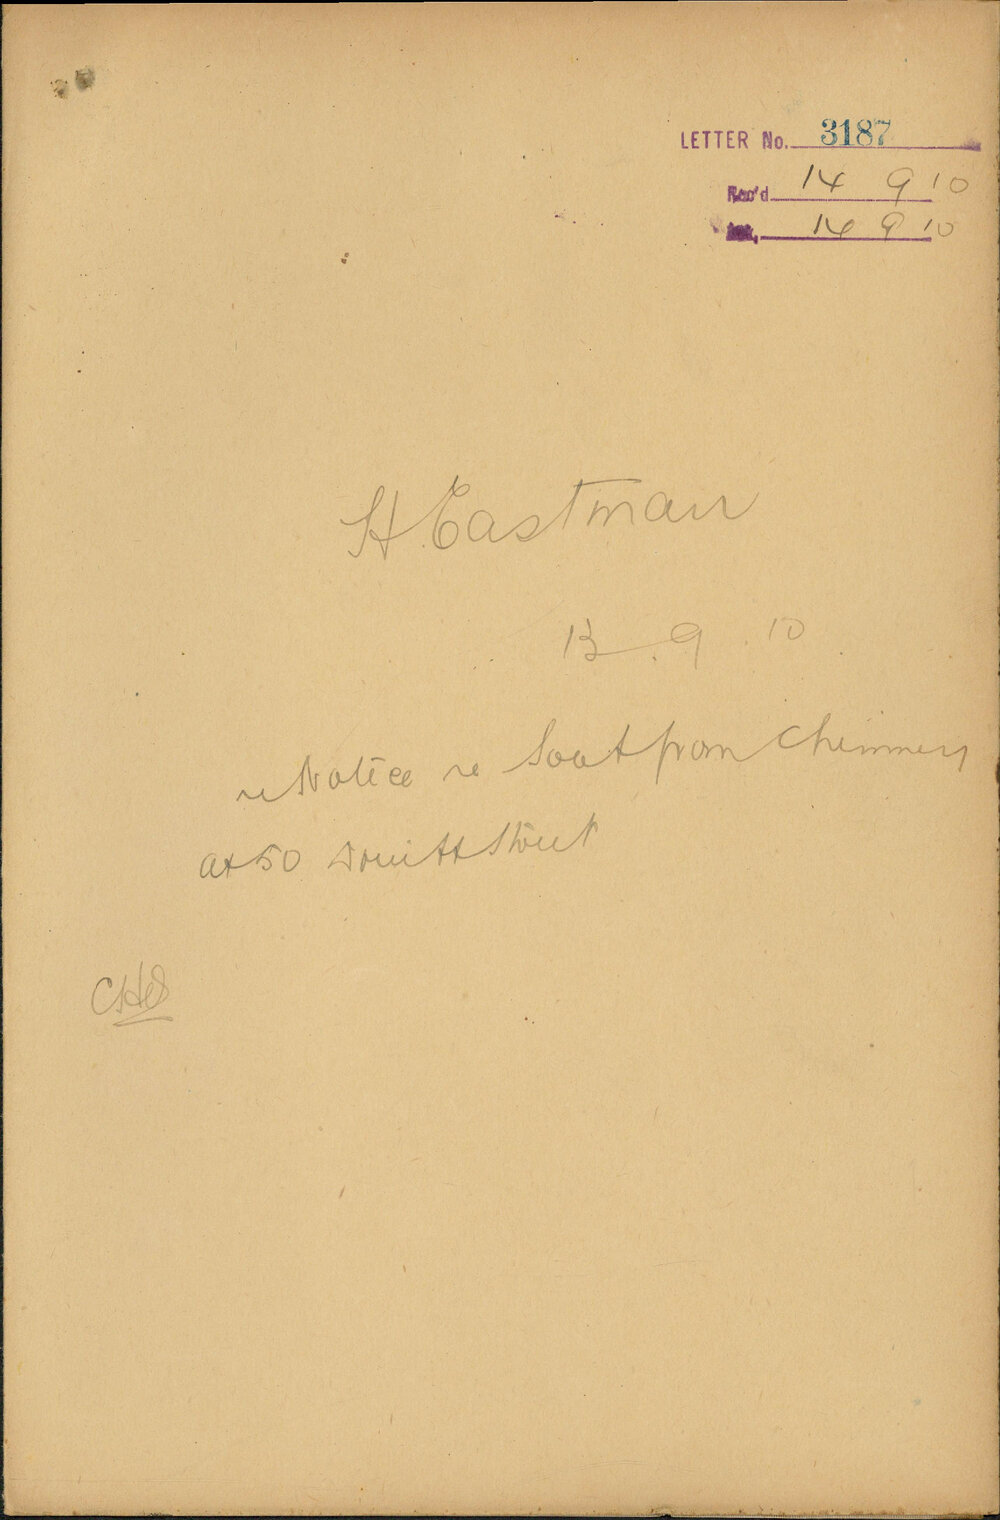 LETTER No. 3187
Rec'd 14 9 10
14 9 10
H Eastman
13. 9. 10
re Notice re Soot from Chimney
at 50 Druitt Street